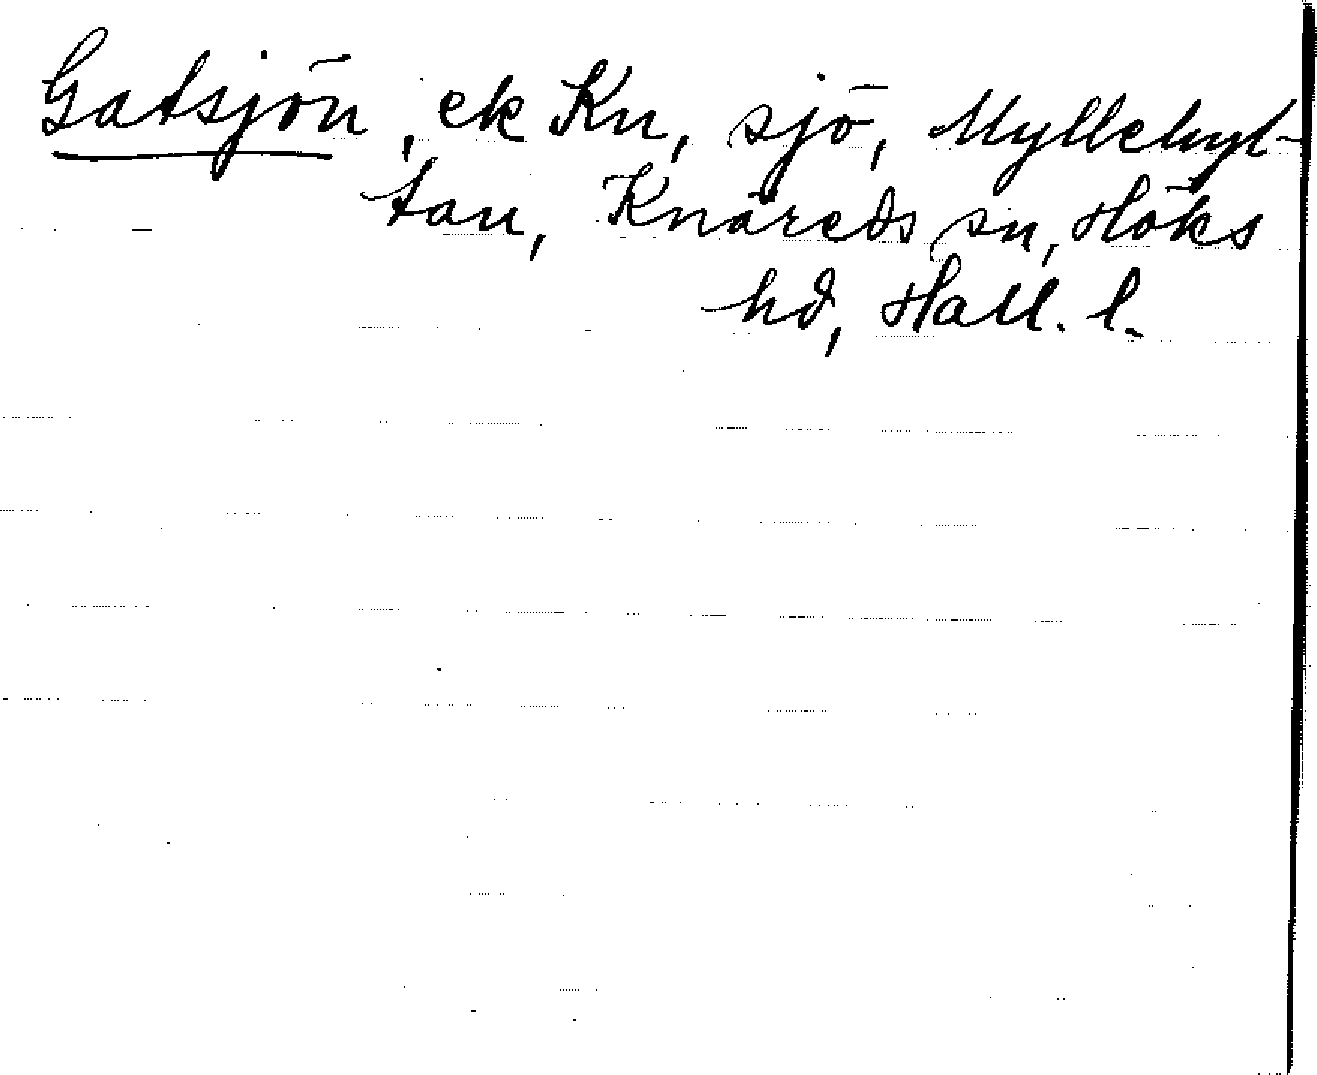 Gatsjön, ek Kn, sjö, Myllehyt-
tan, Knäreds sn, Höks
hd, Hall. l.